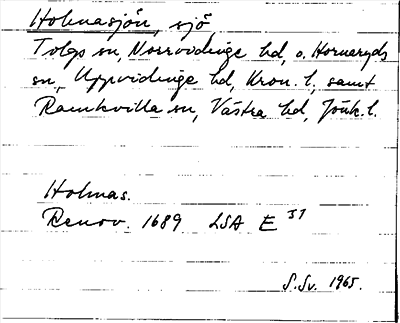 Holmasjön, sjö
Tolgs sn, Norrvidinge hd, o. Hornaryds
sn, Uppvidinge hd, Kron. l., samt
Ramkvilla sn, Västra hd, Jönk. l.
Holmas.
Renov. 1689 LSA E 31
S. Sv. 1965.